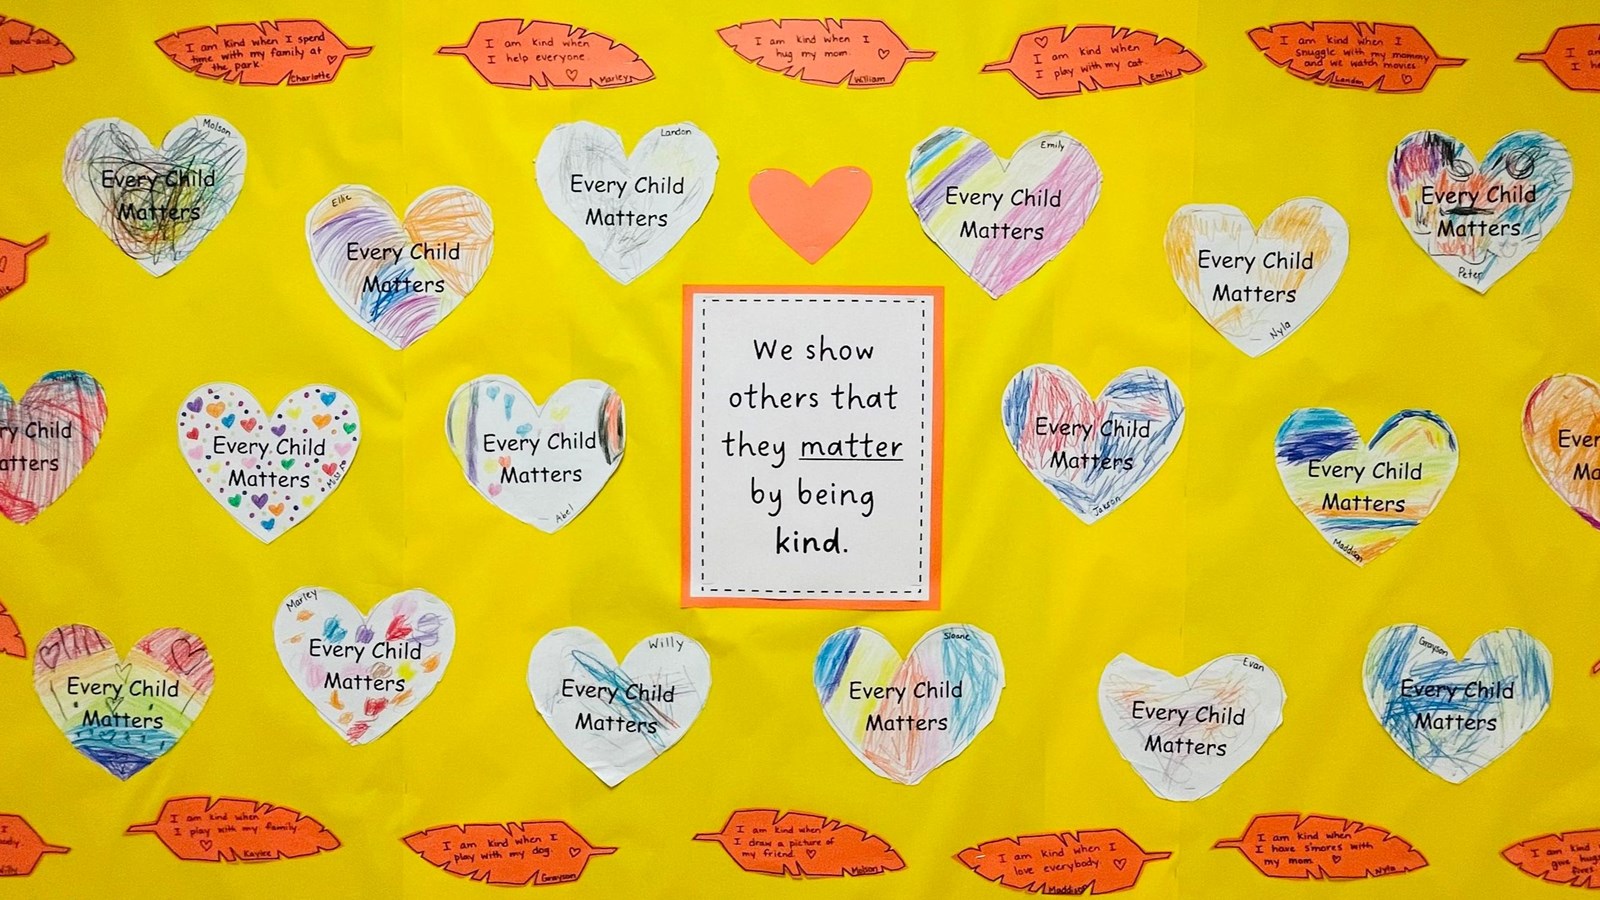 band-aid.
I am kind when I spend
time with my family at
the park.
Charlotte
I am kind when
I help everyone.
Marley
I am kind when I
hug my mom.
William
I am kind when
I play with my cat.
Emily
I am kind when I
snuggle with my mommy
and we watch movies.
Landon
Molson
Every Child
Matters
Ellie
Every Child
Matters
Landon
Every Child
Matters
Emily
Every Child
Matters
Every Child
Matters
Nyla
Every Child
Matters
Peter
We show
others that
they matter
by being
kind.
Child
Every Child
Matters
Every Child
Matters
Abel
Every Child
Matters
Jakson
Every Child
Matters
Maddison
Every Child
Matters
Marley
Every Child
Matters
Willy
Every Child
Matters
Sloane
Every Child
Matters
Evan
Every Child
Matters
Grayson
Every Child
Matters
I am kind when
I play with my family
Kaylee
I am kind when I
play with my dog.
Grayson
I am kind when
I draw a picture of
my friend.
Molson
I am kind when I
love everybody.
Maddison
I am kind when
I have s'mores with
my mom
Nyla
I am kind
give